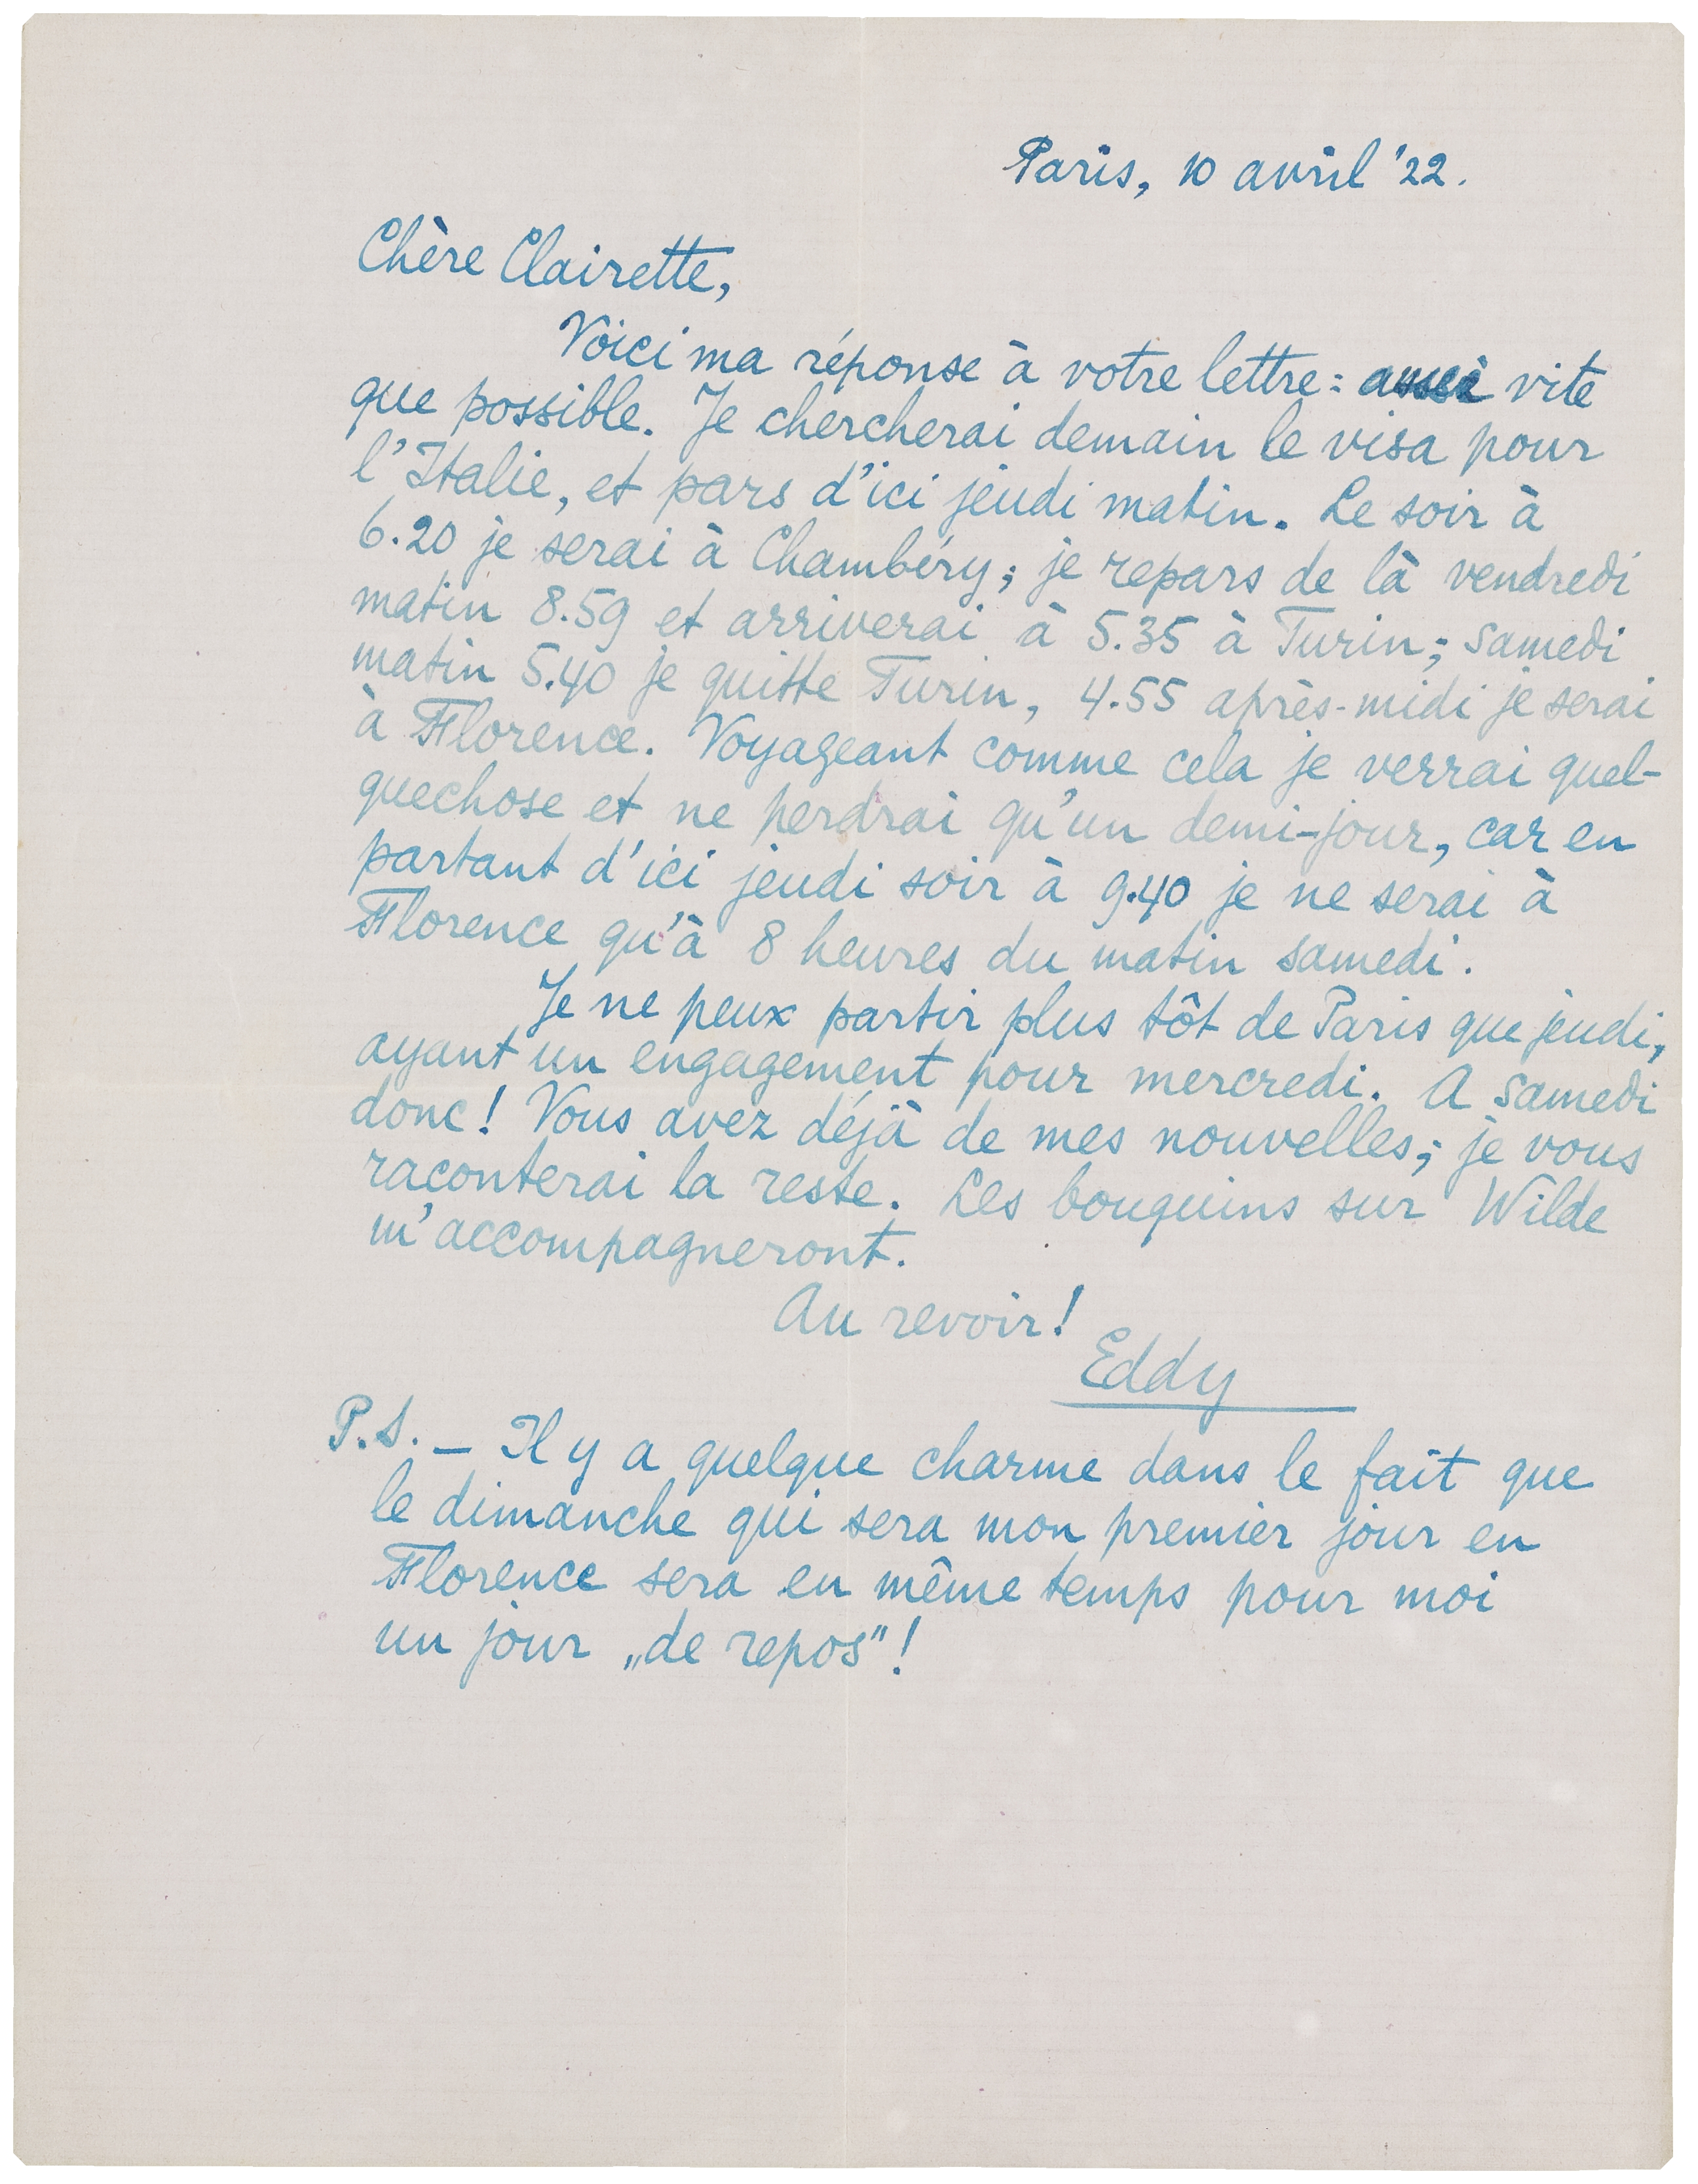 Paris, 10 avril '22.
Chère Clairette,
Voici ma réponse à votre lettre: aussi vite
que possible. Je chercherai demain le visa pour
l'Italie, et pars d'ici jeudi matin. Le soir à
6.20 je serai à Chambéry; je repars de là vendredi
matin 8.59 et arriverai à 5.35 à Turin; samedi
matin 5.40 je quitte Turin, 4.55 après-midi je serai
à Florence. Voyageant comme cela je verrai quel-
quechose et ne perdrai qu'un demi-jour, car en
partant d'ici jeudi soir à 9.40 je ne serai à
Florence qu'à 8 heures du matin samedi.
Je ne peux partir plus tôt de Paris que jeudi,
ayant un engagement pour mercredi. A samedi
donc! Vous avez déjà de mes nouvelles; je vous
raconterai la reste. Les bouquins sur Wilde
m'accompagneront.
Au revoir!
Eddy
P.S. — Il y a quelque charme dans le fait que
le dimanche qui sera mon premier jour en
Florence sera en même temps pour moi
un jour „de repos"!